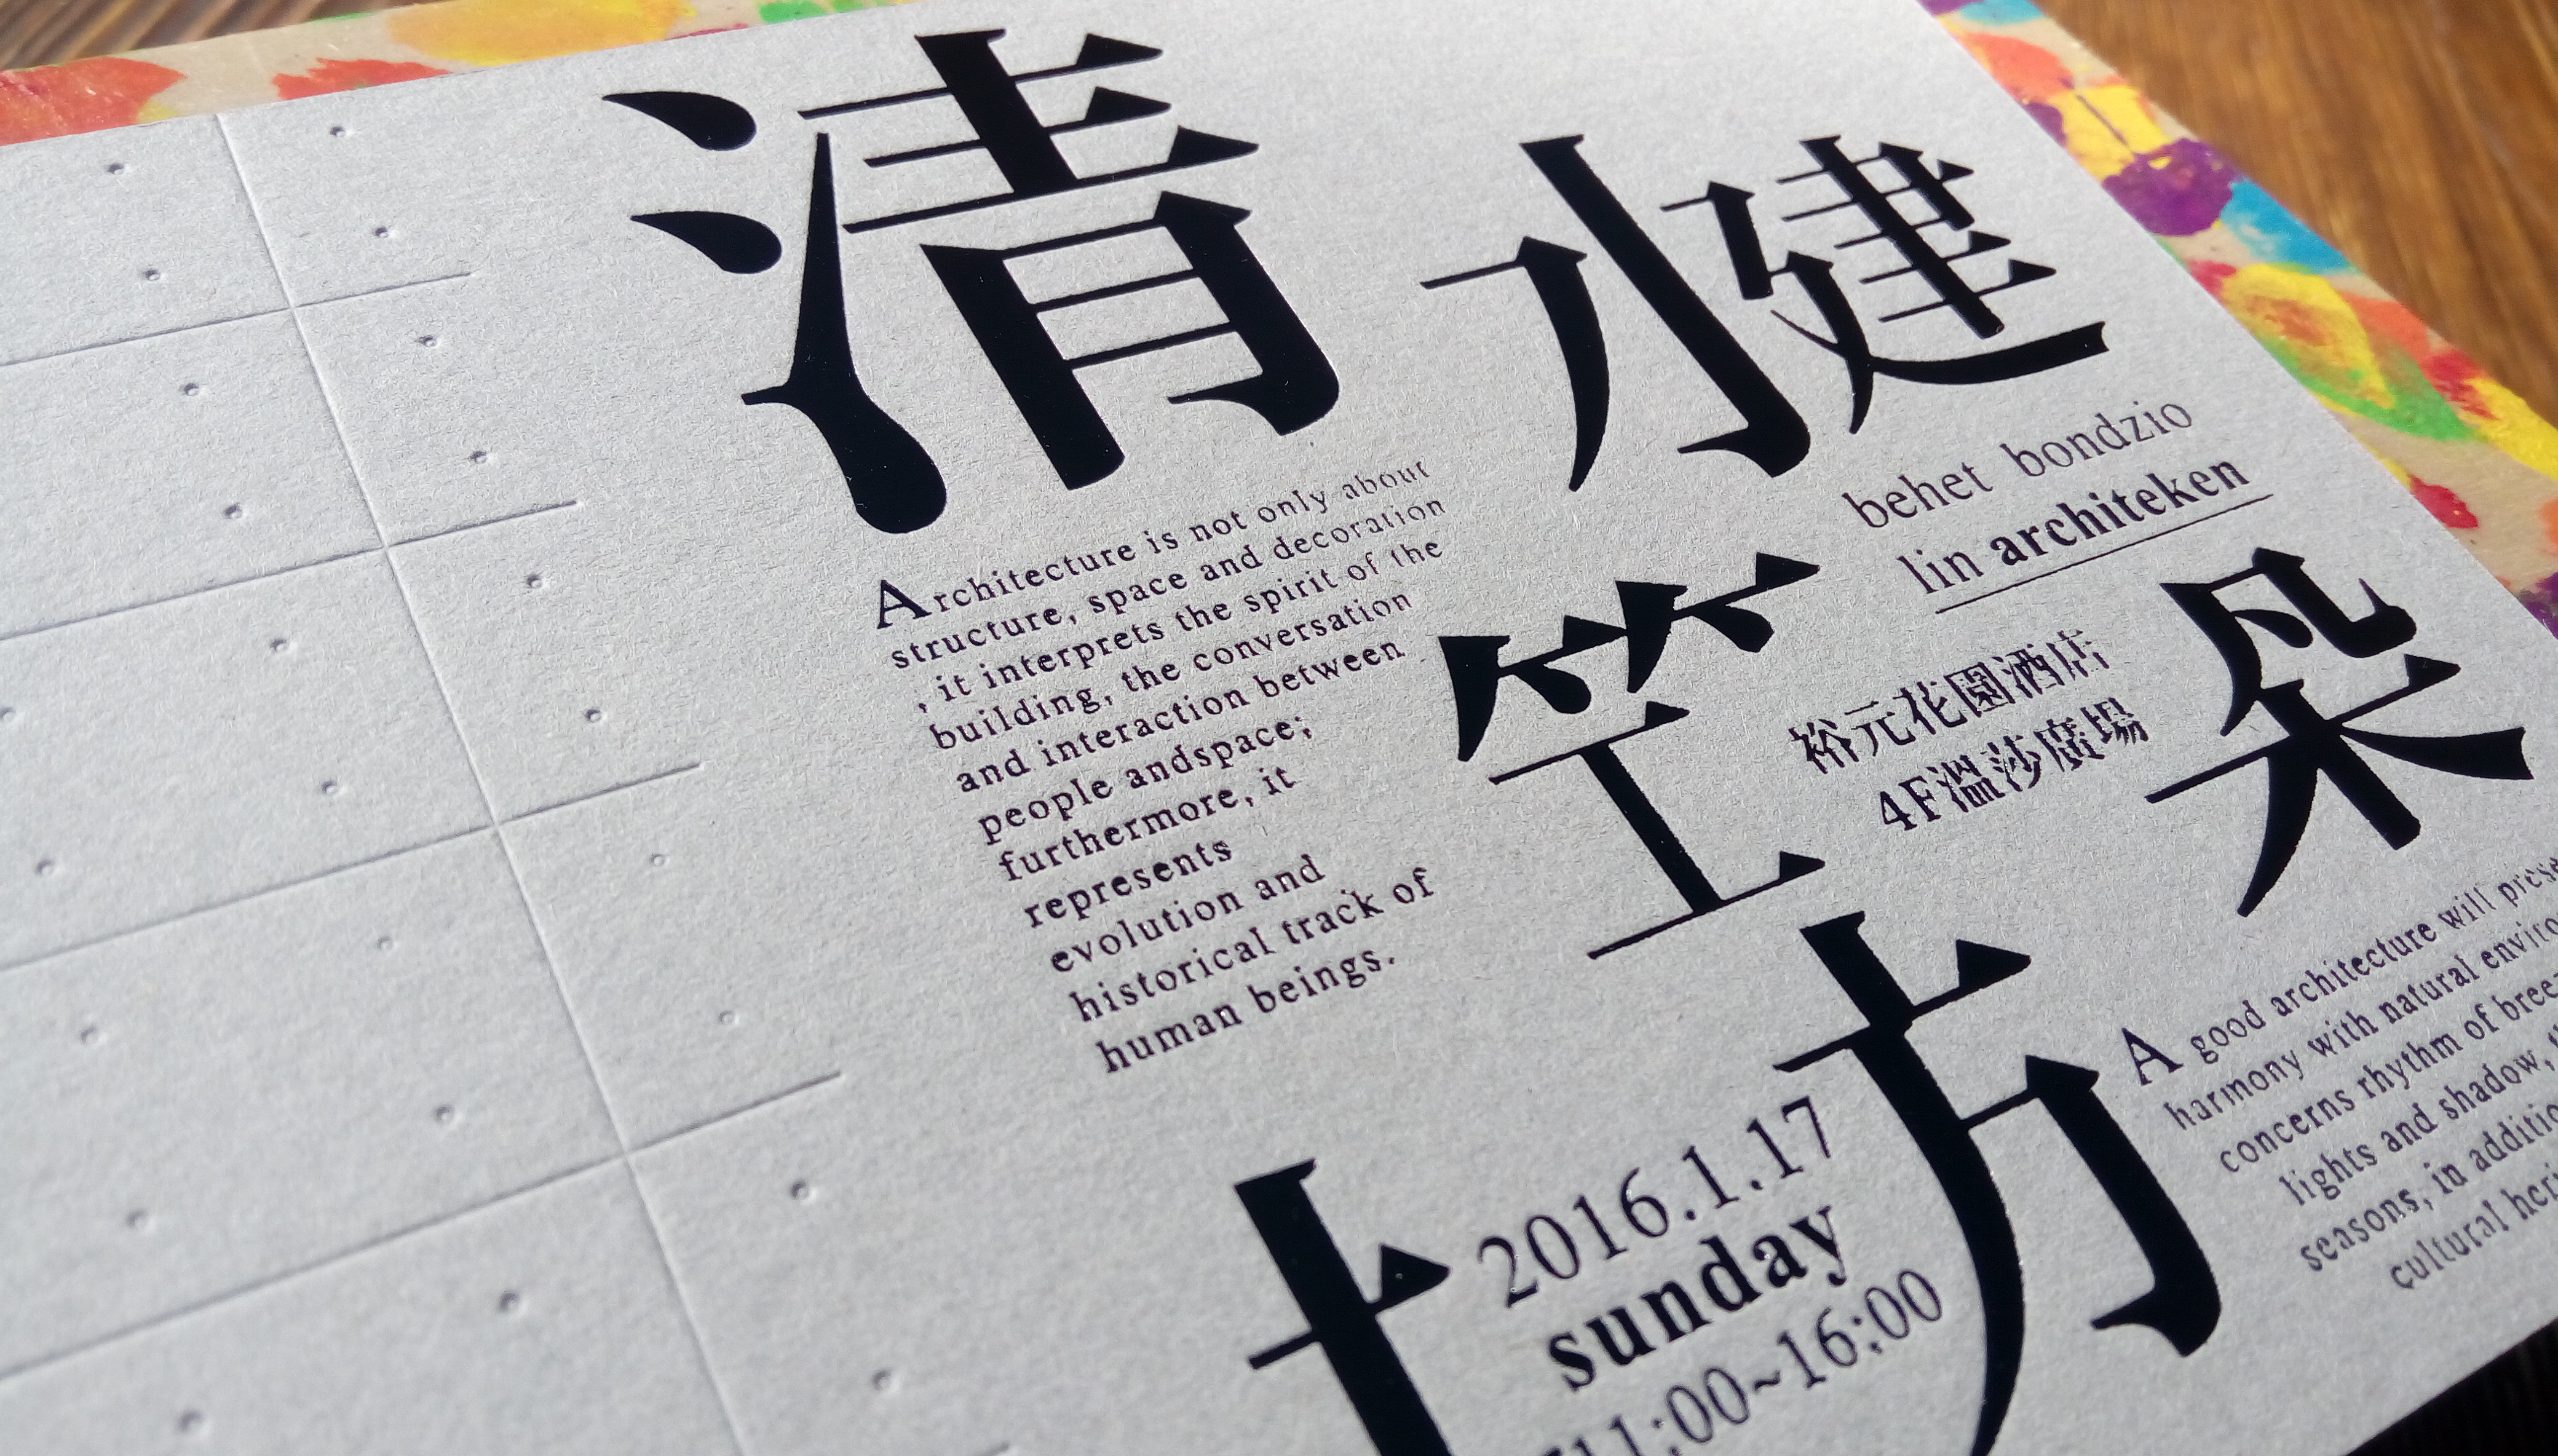 清水建
behet bondzio
lin architeken
築
裕元花園酒店
4F溫莎廣場
Architecture is not only about
structure, space and decoration
, it interprets the spirit of the
building, the conversation
and interaction between
people andspace;
furthermore, it
represents
evolution and
historical track of
human beings.
工坊
2016.1.17
sunday
11:00~16:00
A good architecture will
harmony with natural
concerns rhythm of
lights and shadow,
seasons, in
cultural